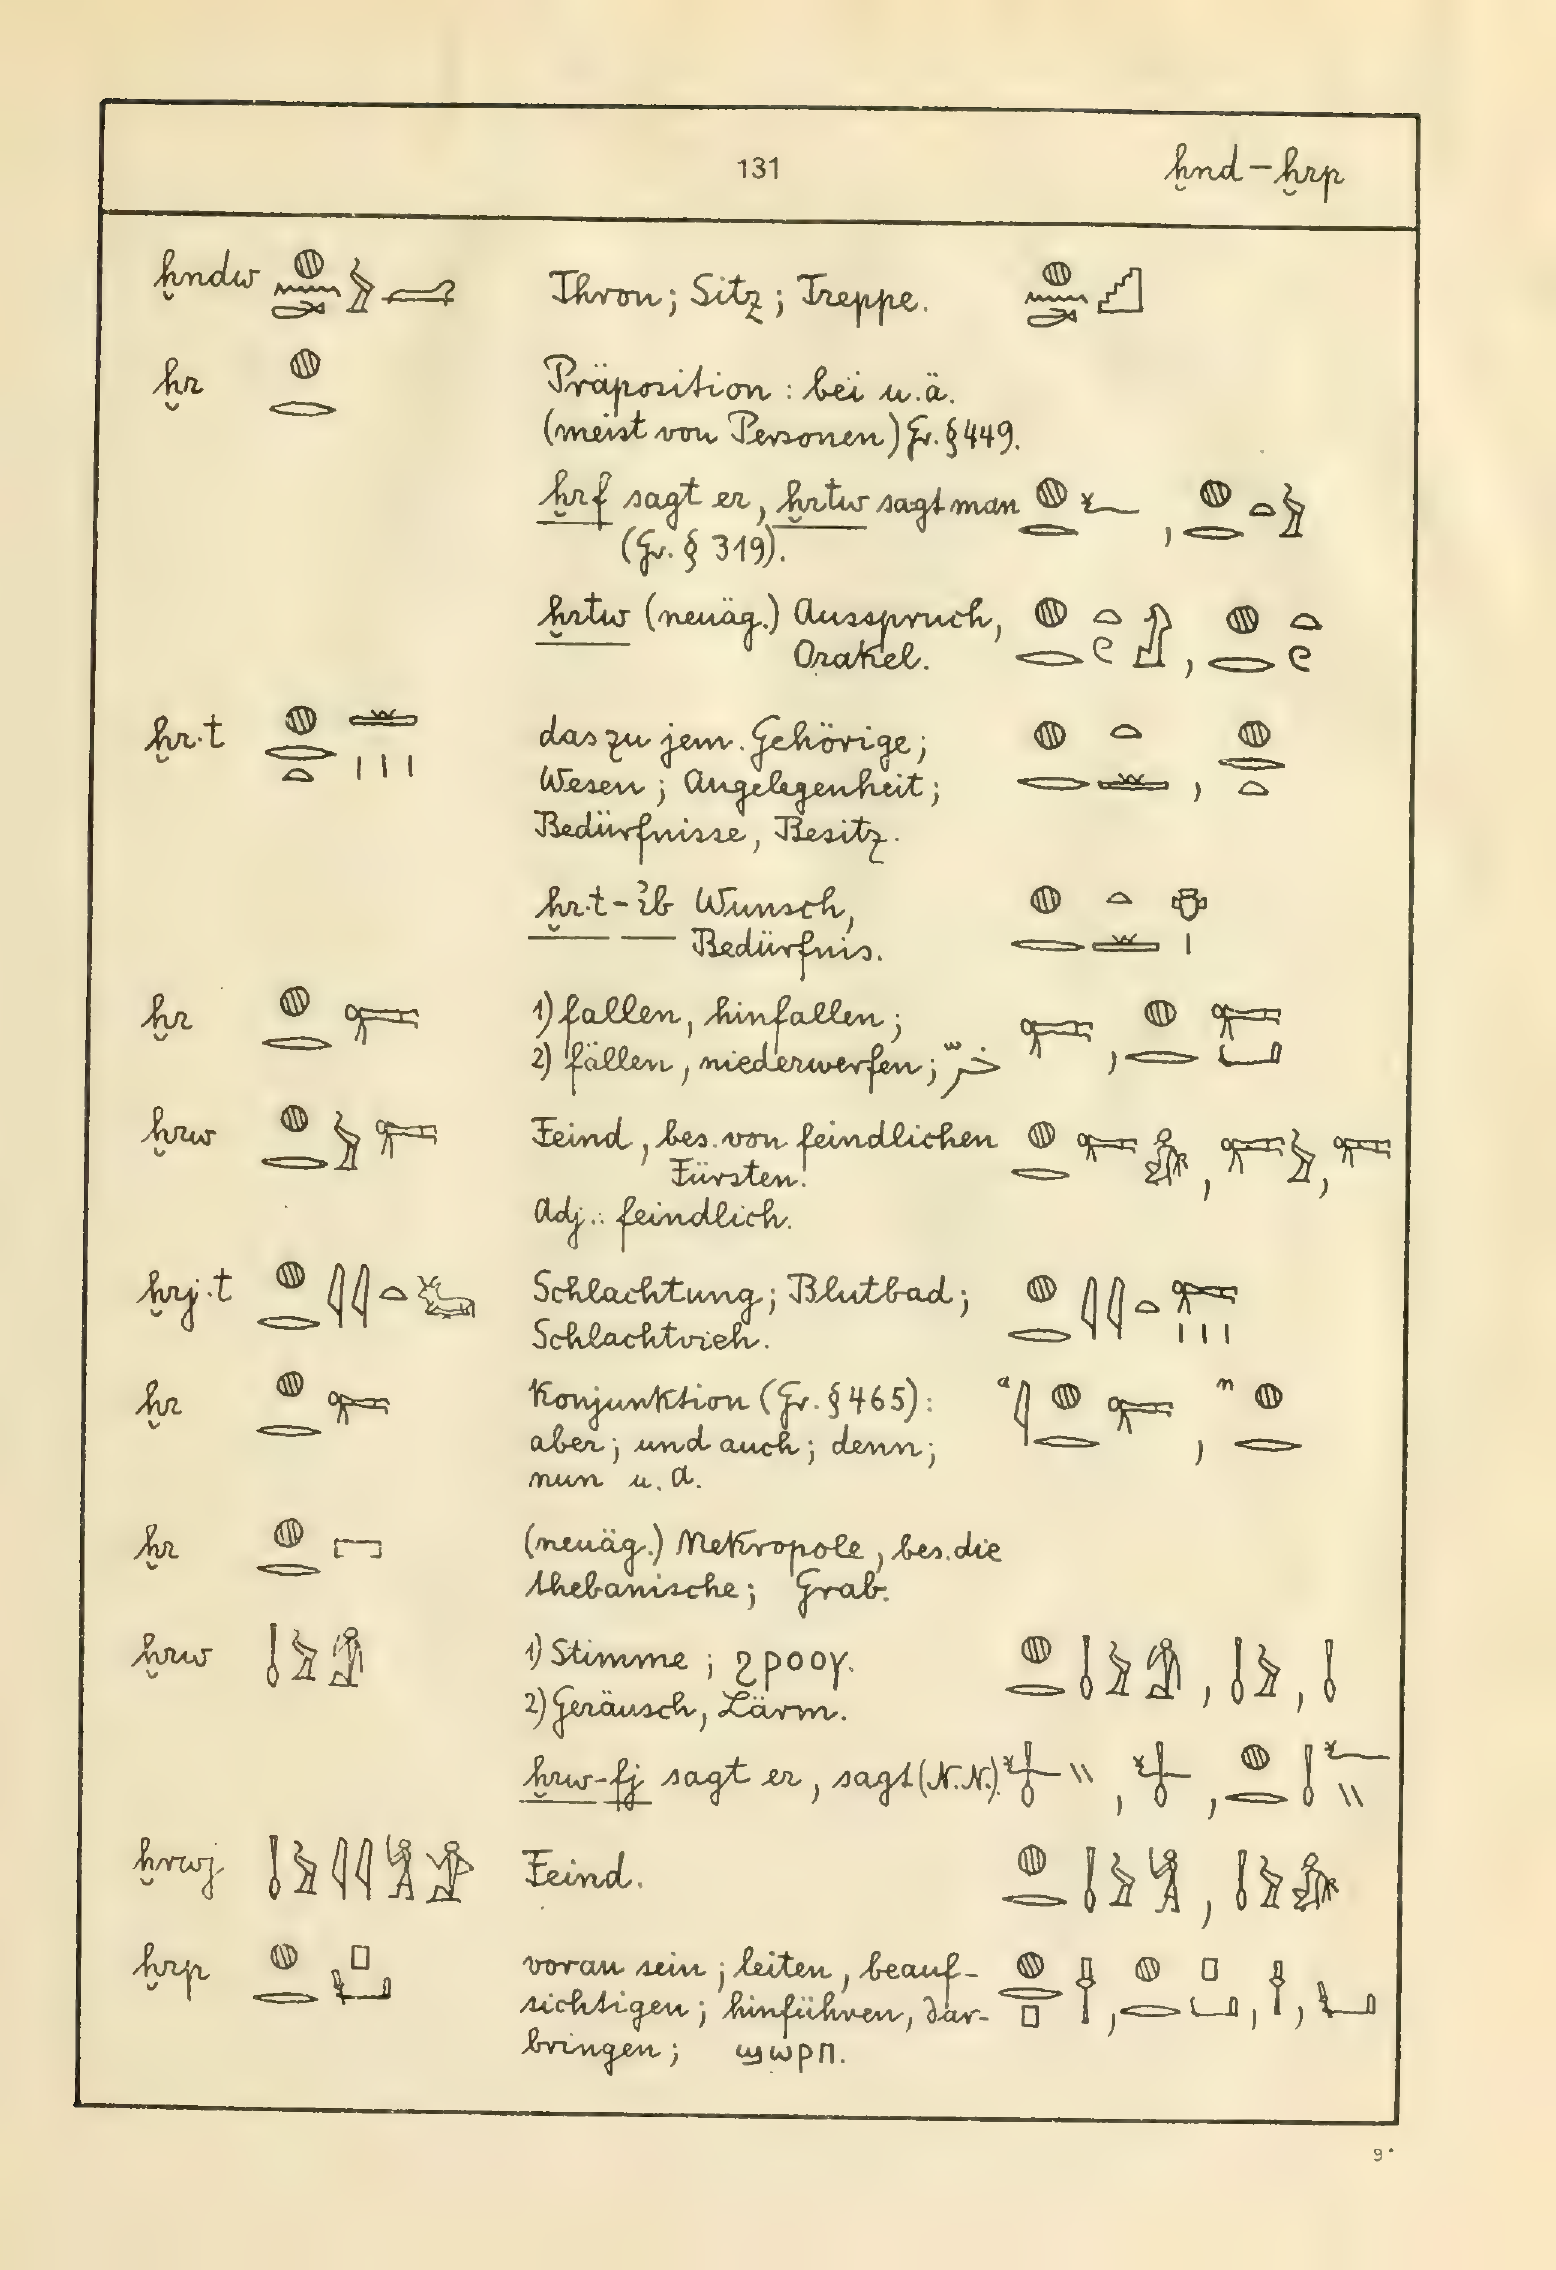 131 ḫnd – ḫrp
ḫndw Thron; Sitz; Treppe.
ḫr Präposition: bei u.ä.
(meist von Personen) Gr. § 449.
ḫrf sagt er, ḫrtw sagt man
(Gr. § 319).
ḫrtw (neuäg.) Ausspruch,
Orakel.
ḫr.t das zu jem. Gehörige;
Wesen; Angelegenheit;
Bedürfnisse, Besitz.
ḫr.t-ỉb Wunsch,
Bedürfnis.
ḫr 1) fallen, hinfallen;
2) fällen, niederwerfen; خرّ
ḫrw Feind, bes. von feindlichen
Fürsten.
Adj.: feindlich.
ḫrj.t Schlachtung; Blutbad;
Schlachtvieh.
ḫr Konjunktion (Gr. § 465): a n
aber; und auch; denn;
nun u. a.
ḫr (neuäg.) Nekropole, bes. die
thebanische; Grab.
ḫrw 1) Stimme; ϩⲣⲟⲟⲩ.
2) Geräusch, Lärm.
ḫrw-fj sagt er, sagt (N.N.).
ḫrwj Feind.
ḫrp voran sein; leiten, beauf-
sichtigen; hinführen, dar-
bringen; ϣⲱⲣⲡ.
9*